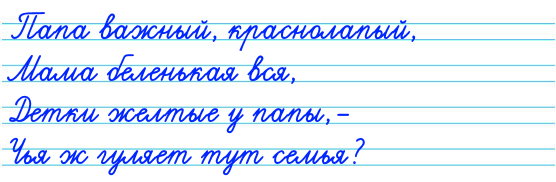 Папа важный, краснолапый,
Мама беленькая вся,
Детки желтые у папы,–
Чья ж гуляет тут семья?